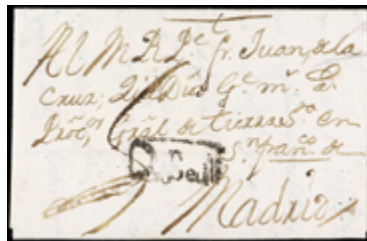 Al M R P.e fr. Juan, de la
Cruz, Q. Dios G.e m.s a.s
Proc.or Gral de tierra s.ta en
S.n Fran.co de
Madrid